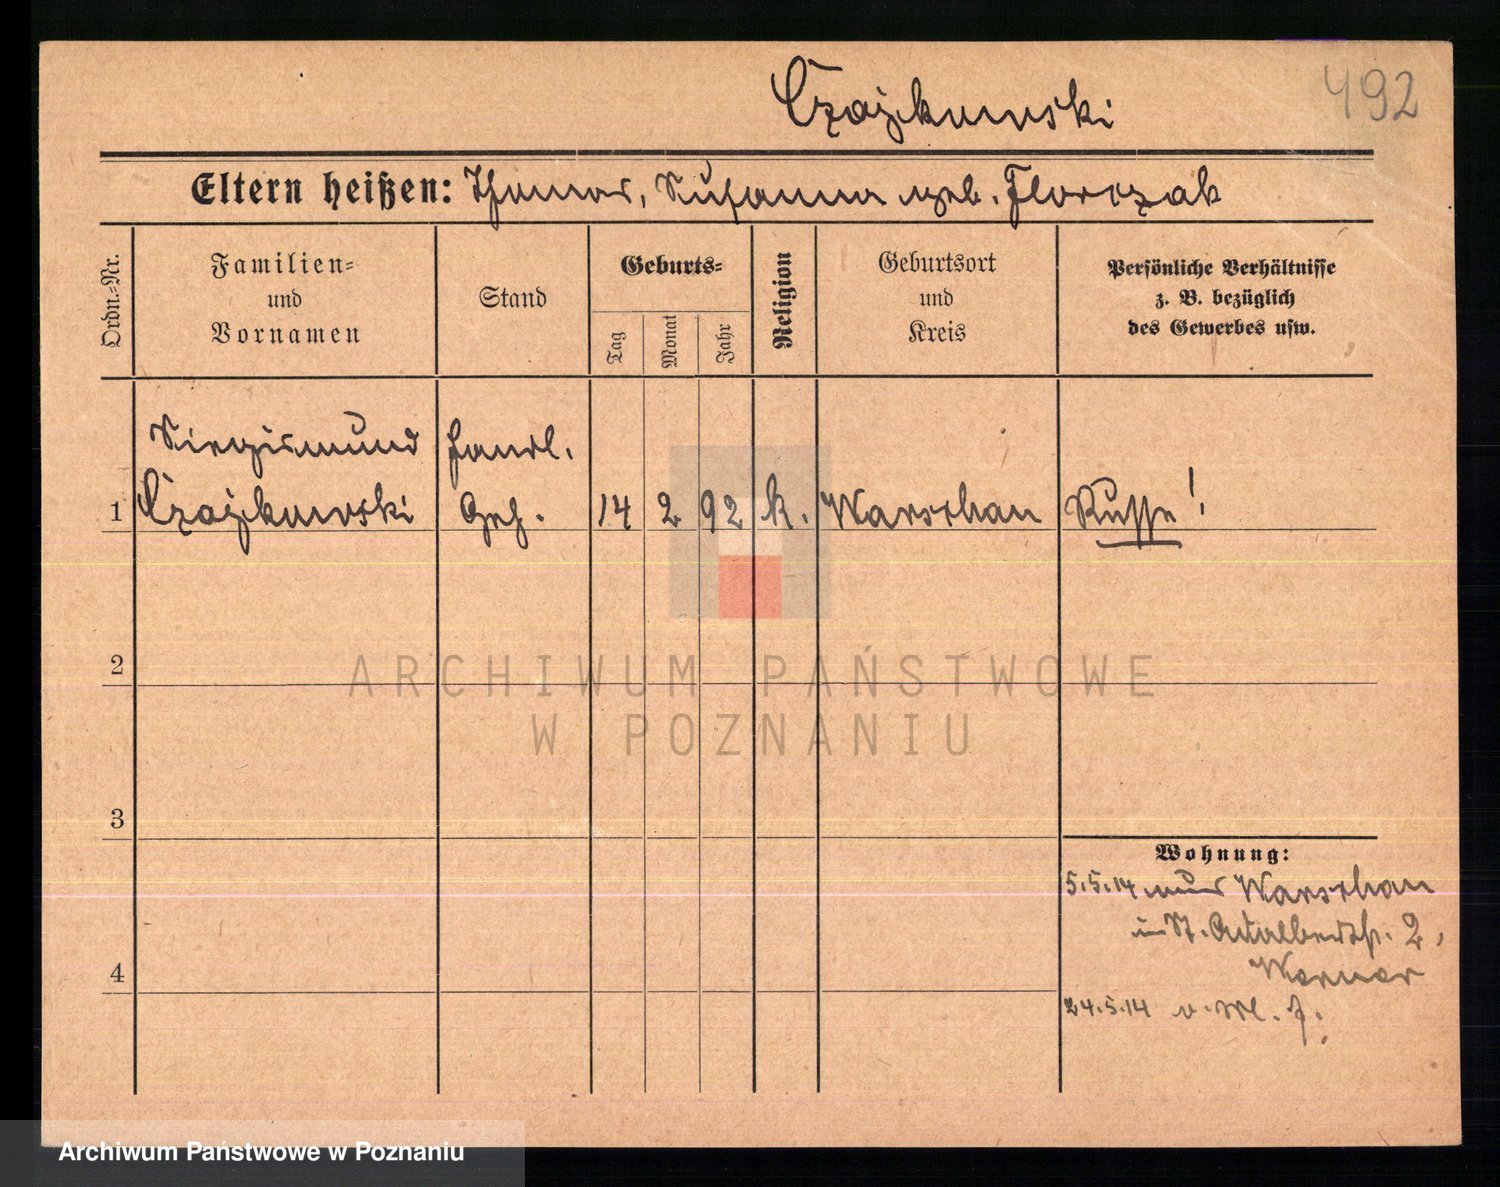 Czajkowski
492
Eltern heißen: Thomas, Susanna geb. Florczak
Ordn.-Nr.
Familien-
und
Vornamen
Stand
Geburts-
Tag
Monat
Jahr
Religion
Geburtsort
und
Kreis
Persönliche Verhältnisse
z. B. bezüglich
des Gewerbes usw.
Siegismund Handl.
1 Czajkowski Geh. 14 2 92 k. Warschau Russe!
2
3
4
Wohnung:
5.5.14 aus Warschau
in St. Adalbertstr. 2,
24.5.14
ARCHIWUM PAŃSTWOWE
W POZNANIU
Archiwum Państwowe w Poznaniu